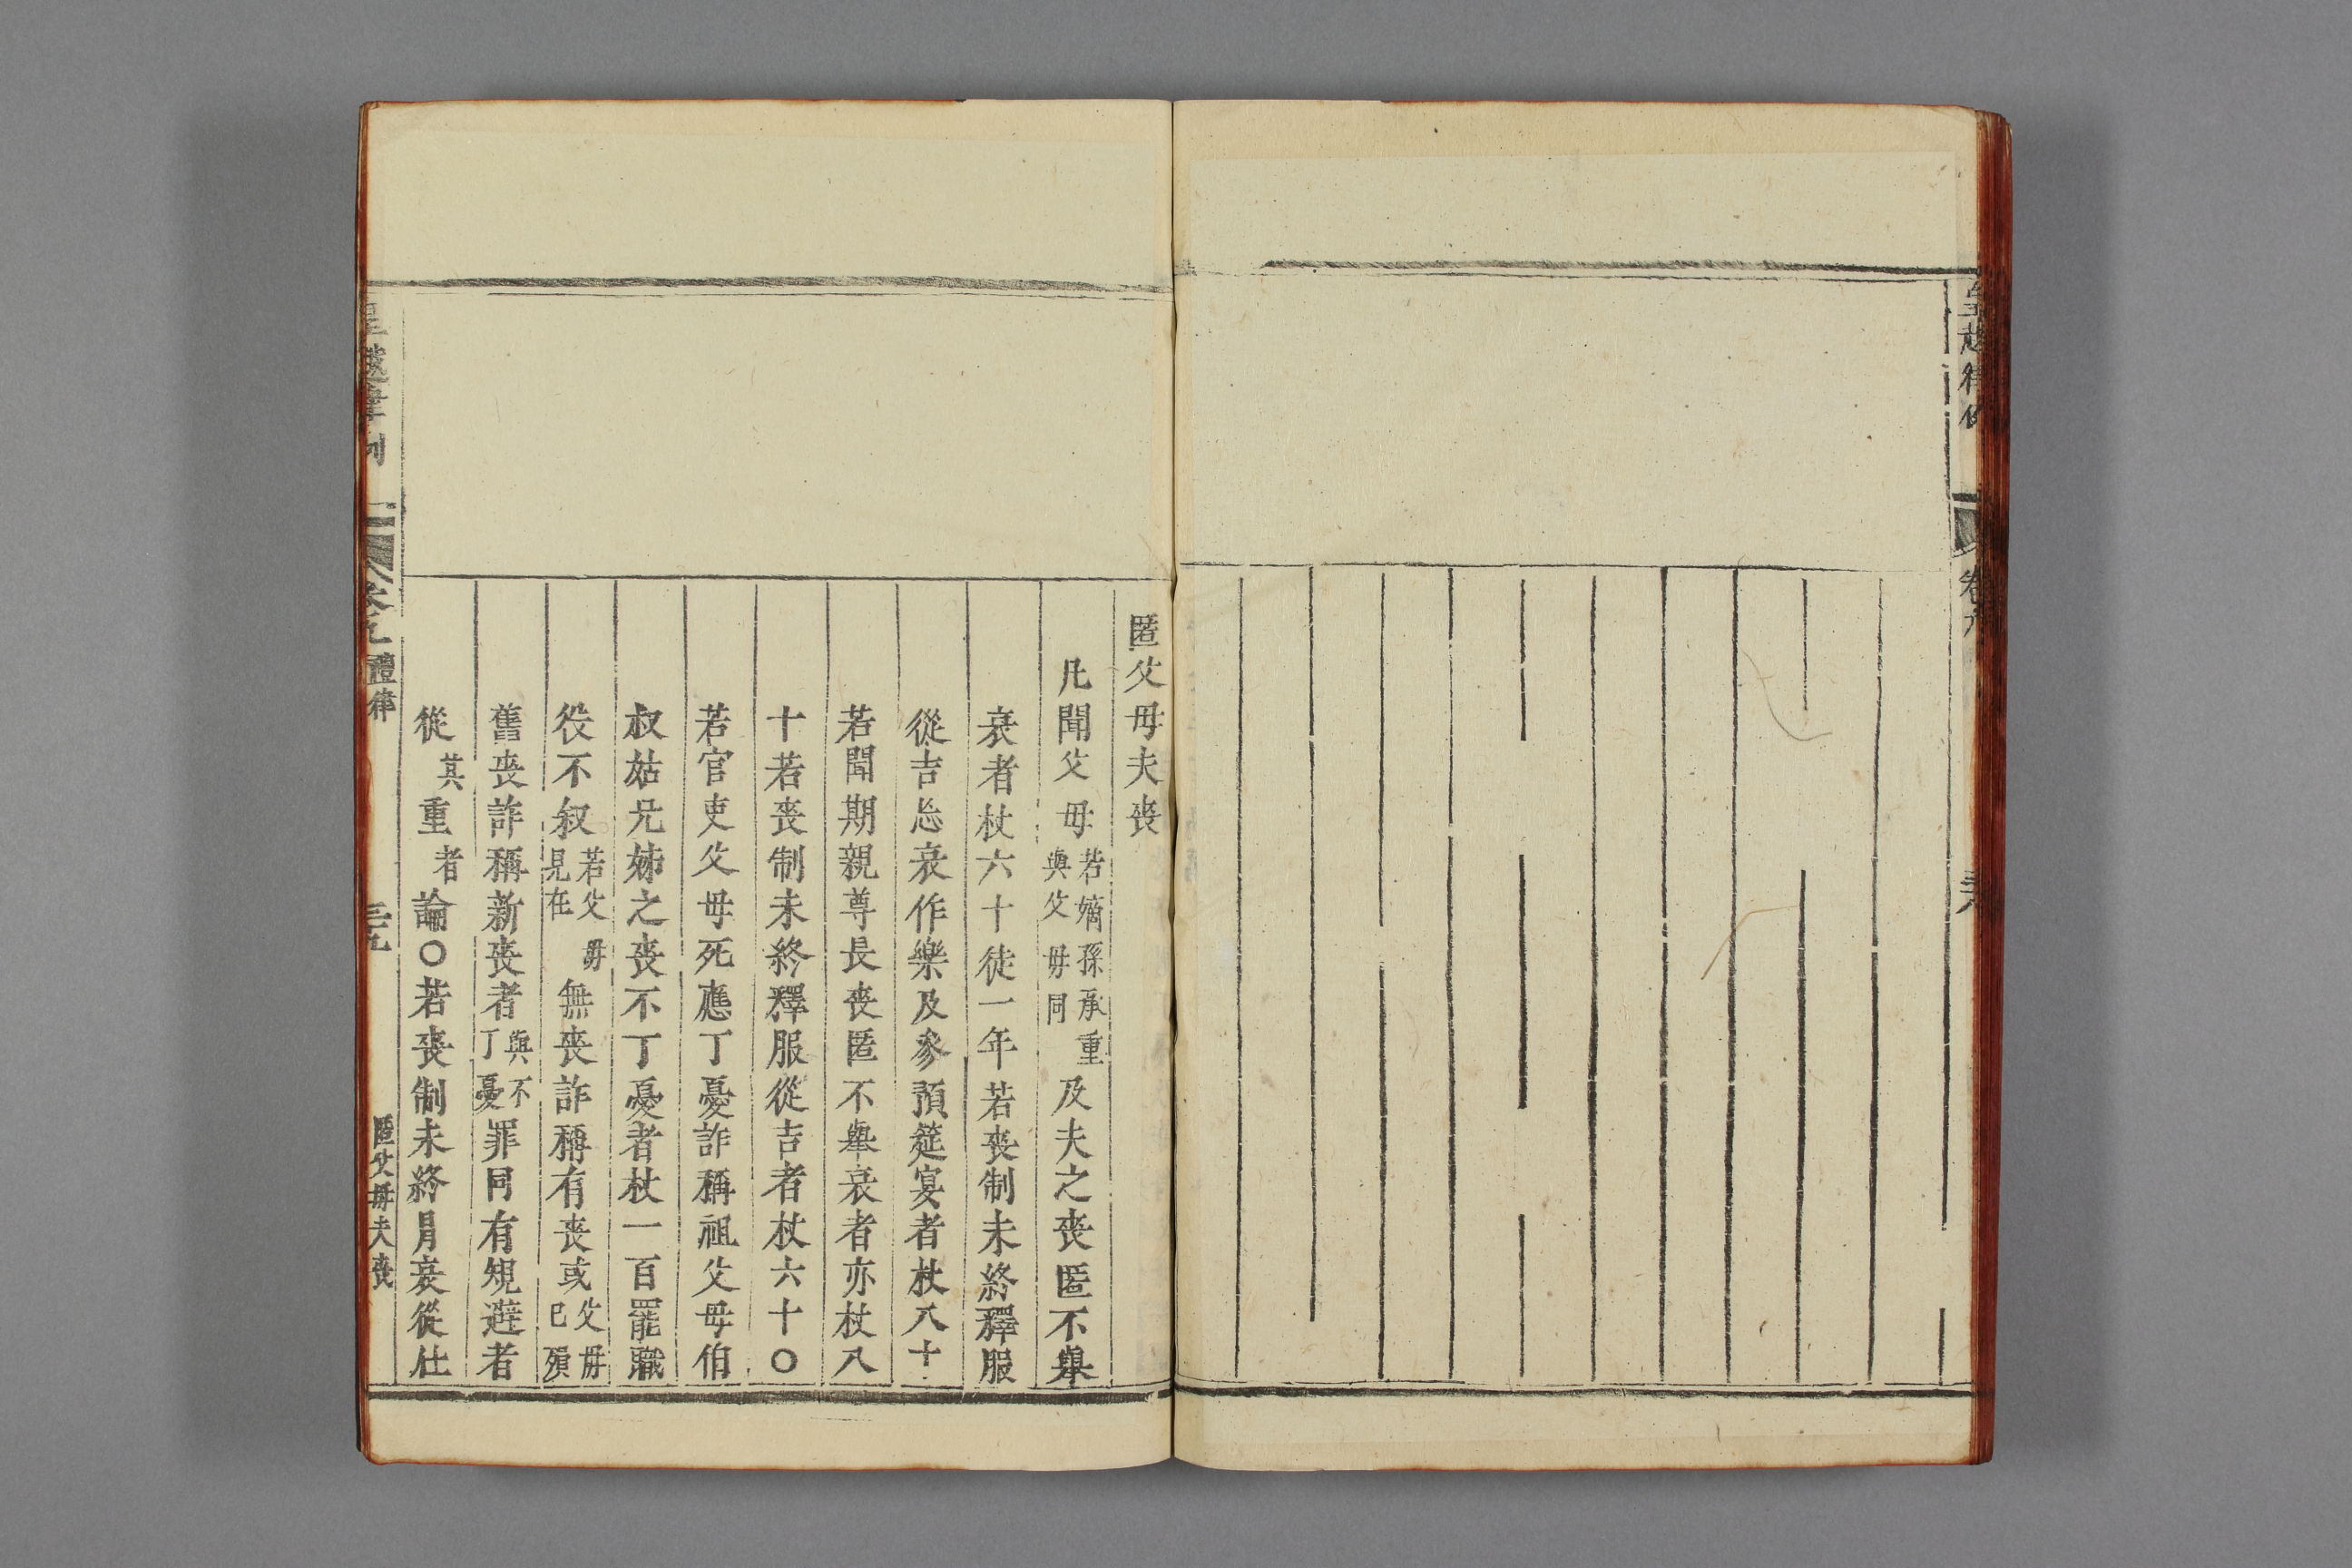 皇越律例
卷九
三八
匿父母夫喪
凡聞父母若嫡孫承重與父母同及夫之喪匿不舉
哀者杖六十徒一年若喪制未終釋服
從吉忘哀作樂及參預筵宴者杖八十
若聞期親尊長喪匿不舉哀者亦杖八
十若喪制未終釋服從吉者杖六十〇
若官吏父母死應丁憂詐稱祖父母伯
叔姑兄姊之喪不丁憂者杖一百罷職
役不叙若父母見在無喪詐稱有喪或父母已殞
舊喪詐稱新喪者與不丁憂罪同有規避者
從其重者論〇若喪制未終冐哀從仕
皇越律例 卷九 禮律 三九 匿父母夫喪